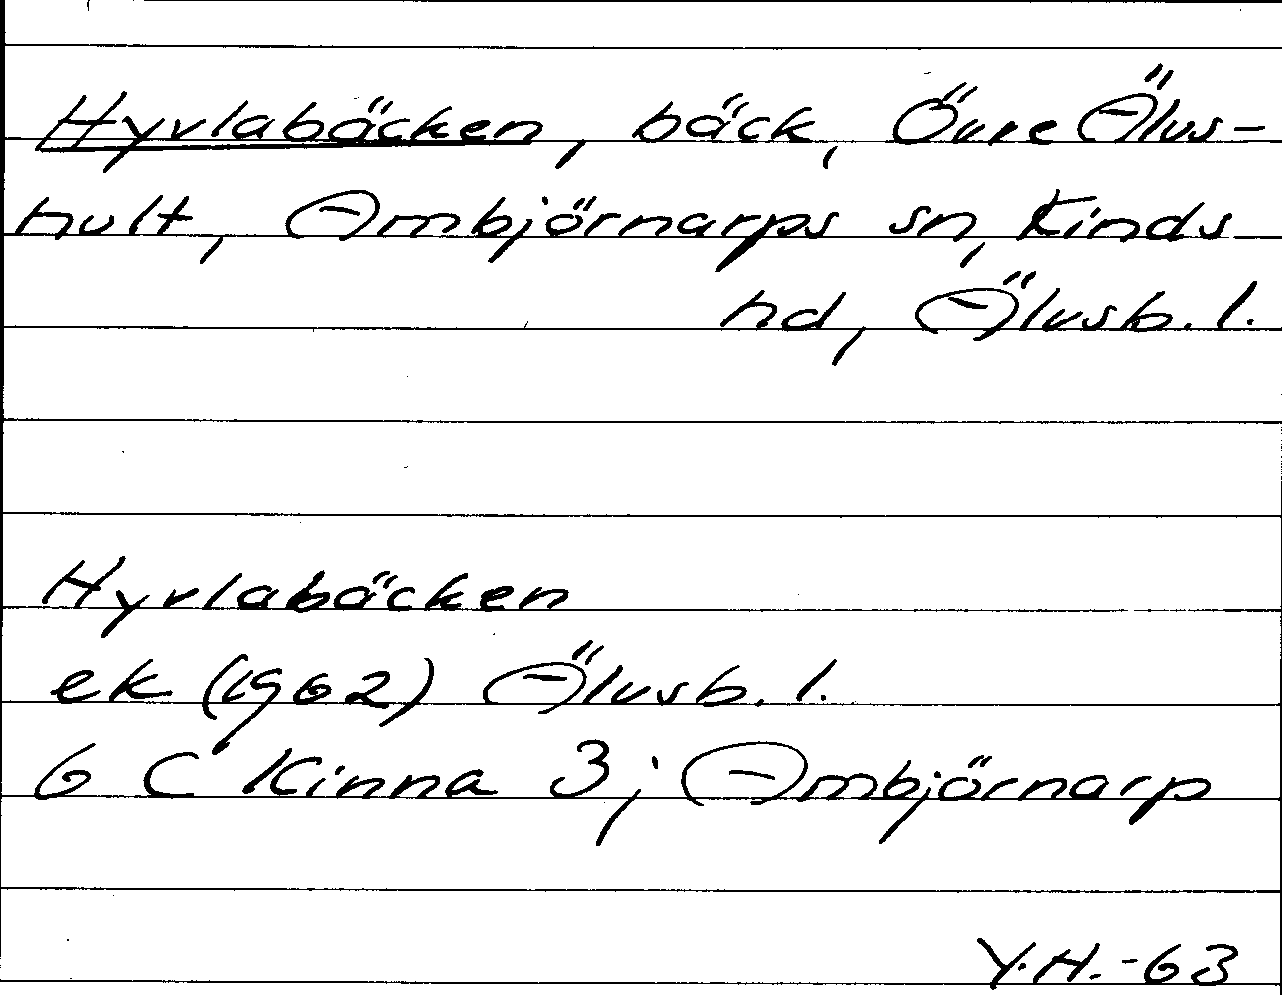 Hyvlabäcken, bäck, Övre Älvs-
hult, Ambjörnarps sn, Kinds
hd, Älvsb. l.
Hyvlabäcken
ek (1962) Älvsb. l.
6 C Kinna 3; Ambjörnarp
Y.H. -63